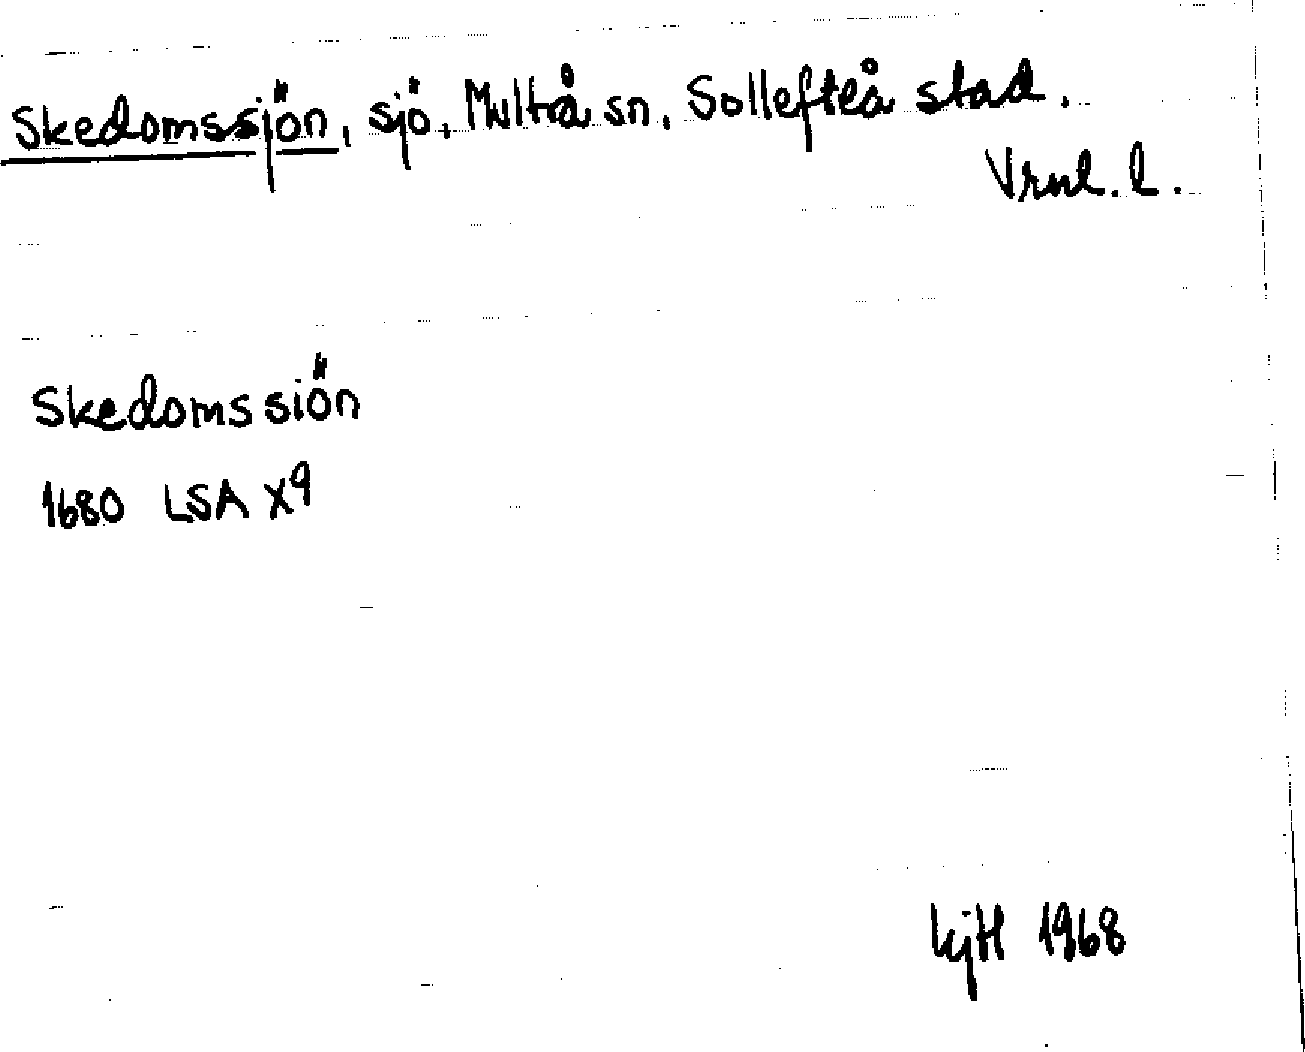 Skedomssjön, sjö, Multrå sn, Sollefteå stad.
Vrnl. l.
Skedomssiön
1680 LSA X9
KjH 1968